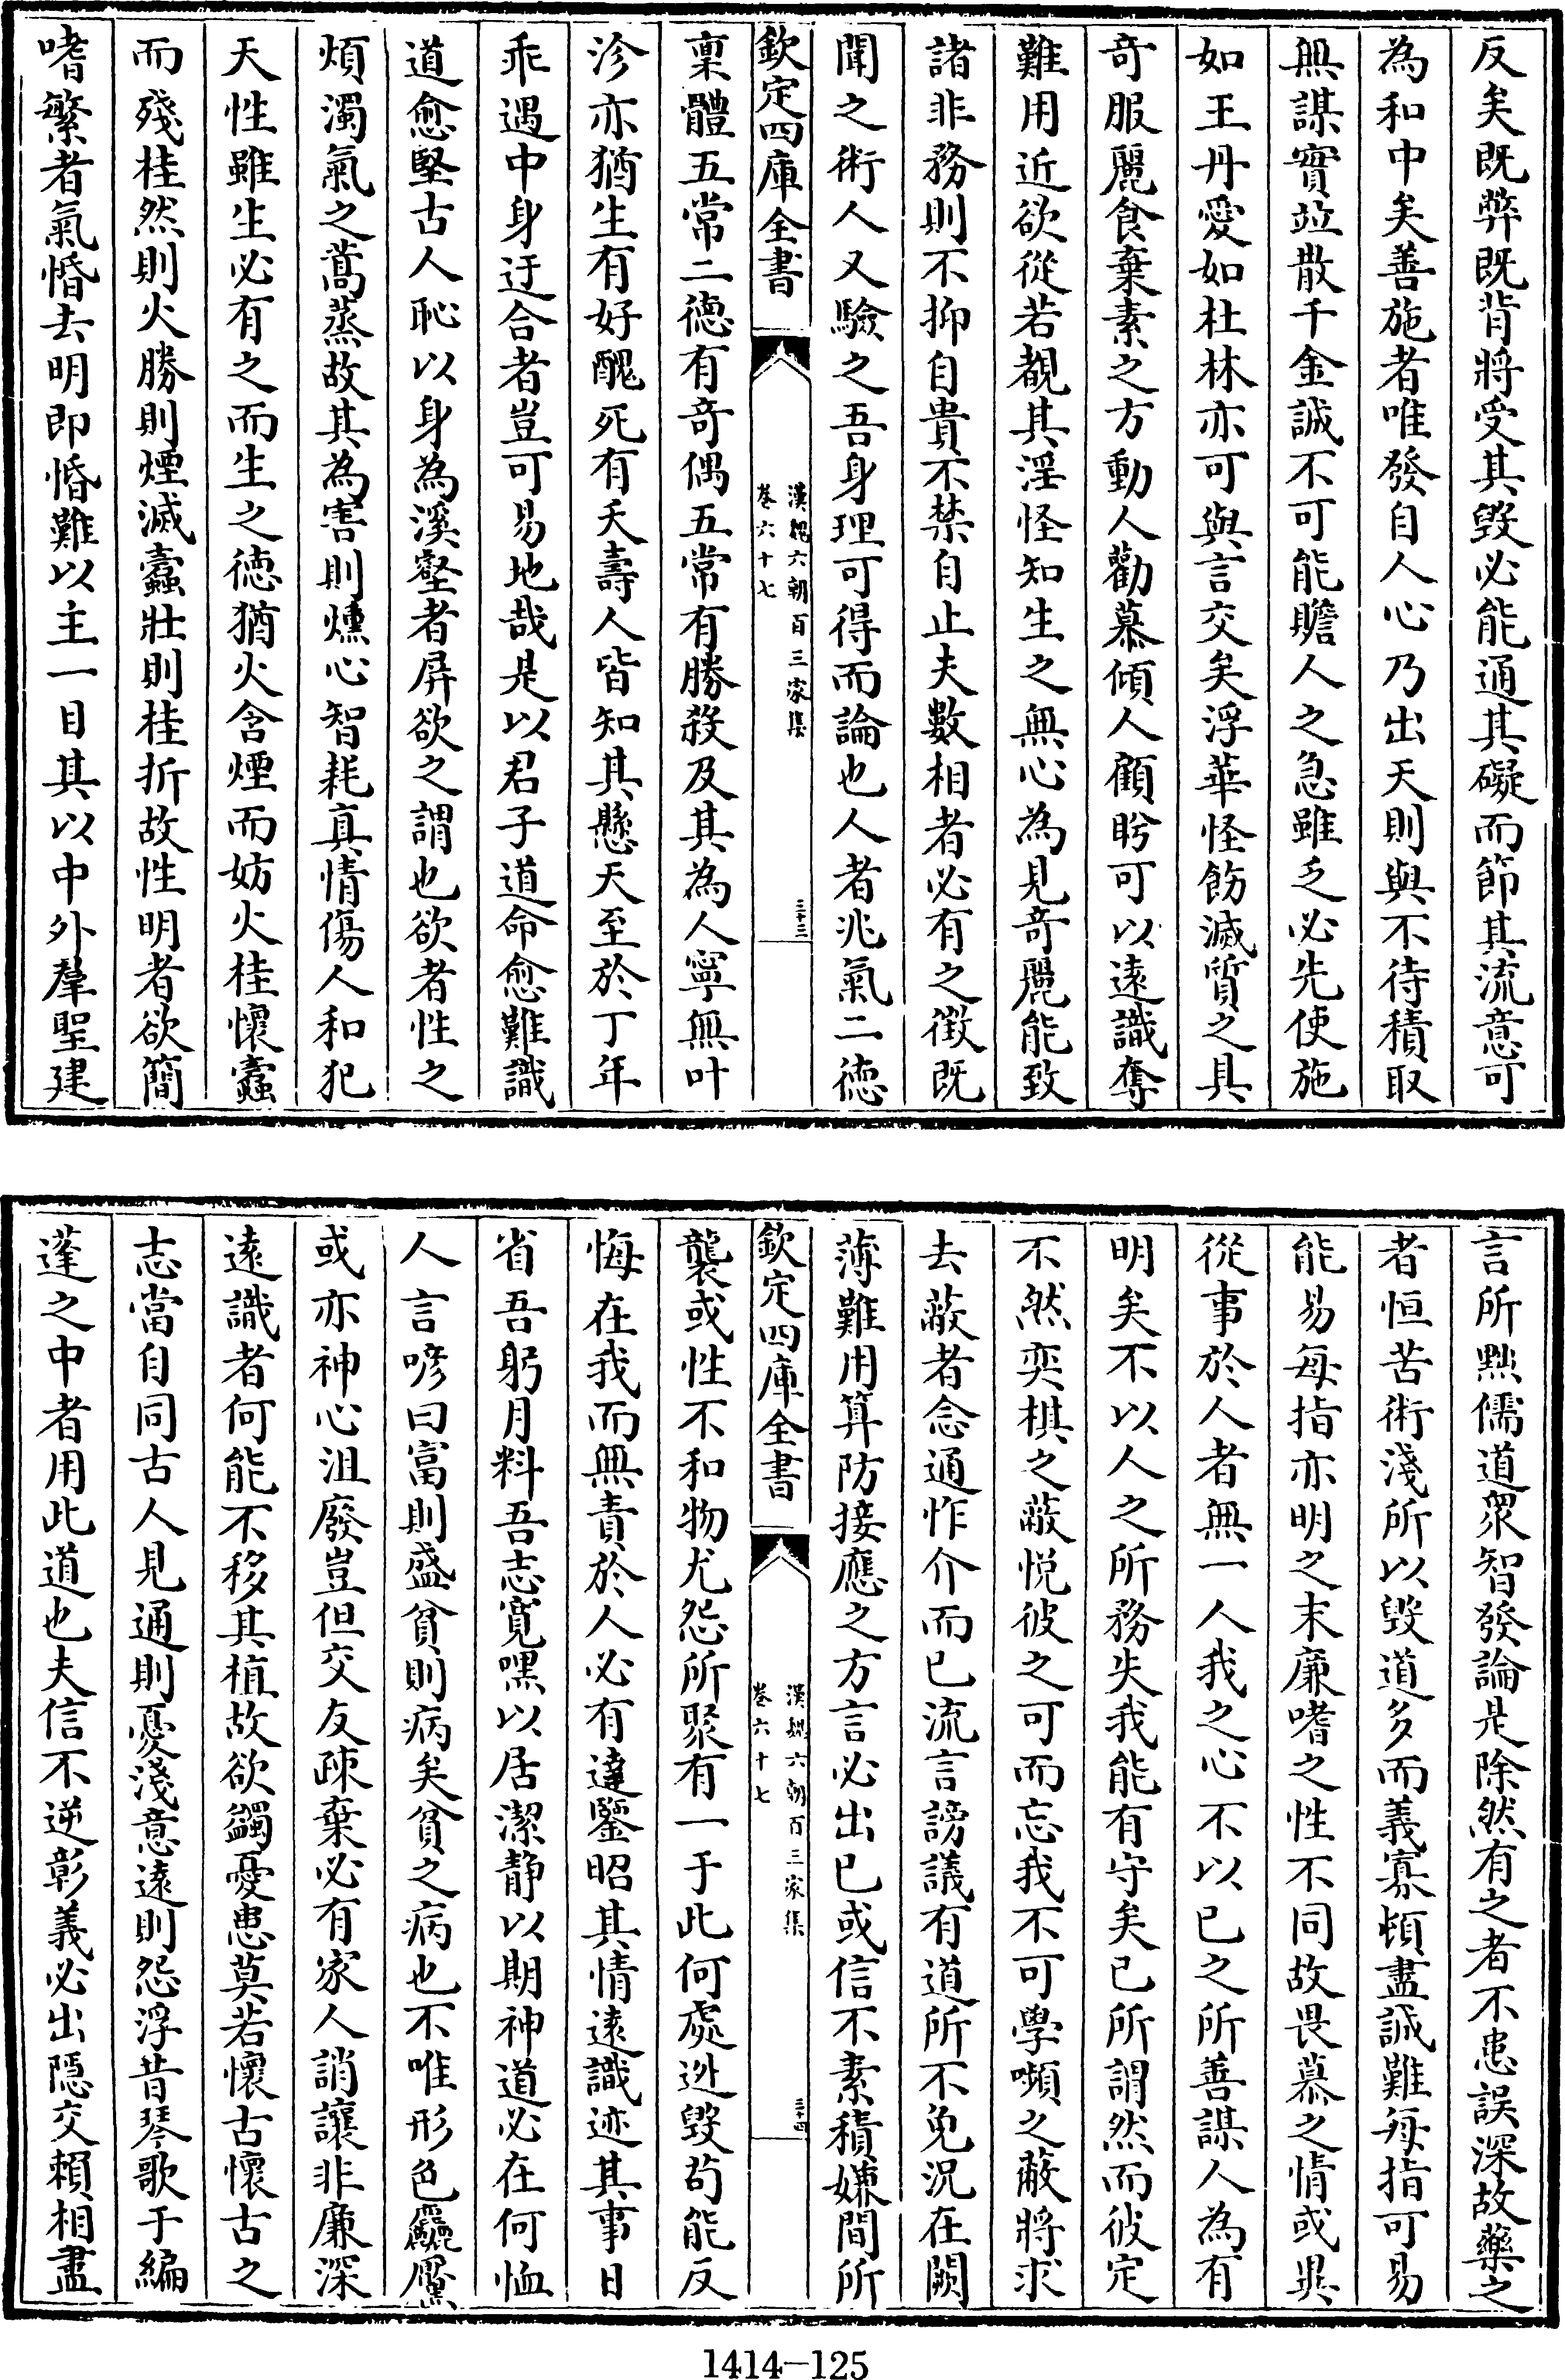 反矣既弊既背將受其毀必能通其礙而節其流意可
為和中矣善施者唯發自人心乃出天則與不待積取
無謀實竝散千金誠不可能贍人之急雖乏必先使施
如王丹愛如杜林亦可與言交矣浮華怪飾滅質之具
奇服麗食棄素之方動人勸慕傾人顧盼可以遠識奪
難用近欲從若覩其淫怪知生之無心為見奇麗能致
諸非務則不抑自貴不禁自止夫數相者必有之徵既
聞之術人又驗之吾身理可得而論也人者兆氣二德
欽定四庫全書
漢魏六朝百三家集
卷六十七
三十三
稟體五常二德有奇偶五常有勝殺及其為人寧無叶
沴亦猶生有好醜死有夭壽人皆知其懸天至於丁年
乖遇中身迂合者豈可易地哉是以君子道命愈難識
道愈堅古人恥以身為溪壑者屏欲之謂也欲者性之
煩濁氣之蒿蒸故其為害則燻心智耗真情傷人和犯
天性雖生必有之而生之德猶火含煙而妨火桂懷蠹
而殘桂然則火勝則煙滅蠹壯則桂折故性明者欲簡
嗜繁者氣惛去明即惛難以主一目其以中外羣聖建
言所黜儒道衆智發論是除然有之者不患誤深故藥之
者恒苦術淺所以毀道多而義寡頓盡誠難每指可易
能易每指亦明之末廉嗜之性不同故畏慕之情或異
從事於人者無一人我之心不以已之所善謀人為有
明矣不以人之所務失我能有守矣已所謂然而彼定
不然奕棋之蔽悅彼之可而忘我不可學嚬之蔽將求
去蔽者念通怍介而已流言謗議有道所不免況在闕
薄難用算防接應之方言必出已或信不素積嫌間所
欽定四庫全書
漢魏六朝百三家集
卷六十七
三十四
襲或性不和物尤怨所聚有一于此何處逃毀茍能反
悔在我而無責於人必有達鑒昭其情遠識迹其事日
省吾躬月料吾志寬嘿以居潔静以期神道必在何恤
人言喭曰富則盛貧則病矣貧之病也不唯形色麤黶
或亦神心沮廢豈但交友疎棄必有家人誚讓非廉深
遠識者何能不移其植故欲蠲憂患莫若懷古懷古之
志當自同古人見通則憂淺意遠則怨浮昔琴歌于編
蓬之中者用此道也夫信不逆彰義必出隠交賴相盡
1414—125